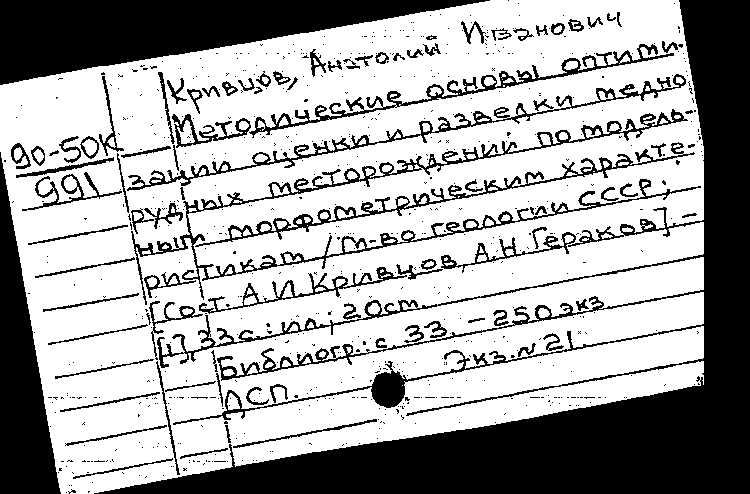 Кривцов, Анатолий Иванович
Методические основы оптими-
90-50К
991
зации оценки и разведки медно
рудных месторождений по модель-
ным морфометрическим характе-
ристикам / М-во геологии СССР;
[Сост. А.И. Кривцов, А.Н. Гераков]. -
[1], 33 с.: ил.; 20 см.
Библиогр.: с. 33. - 250 экз
ДСП. Экз. № 21.